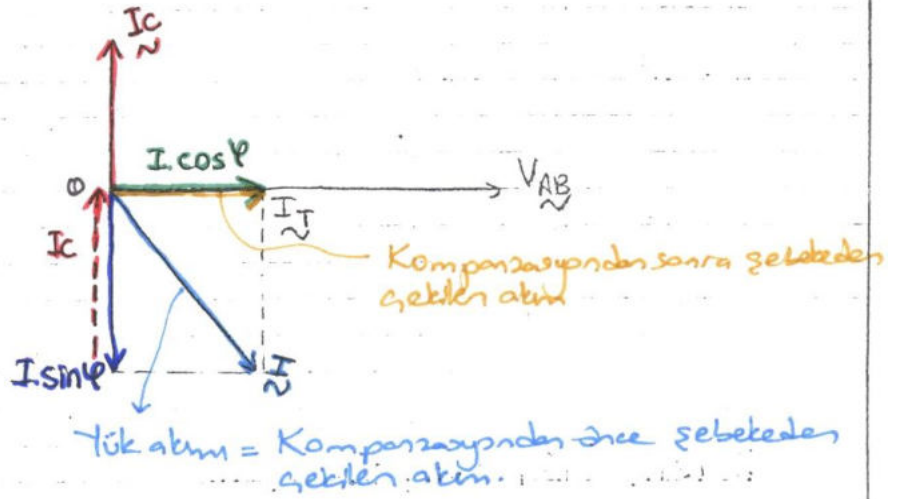 Ic
I.cosφ
0
V_AB
I_T
Ic
Kompanzasyondan sonra şebekeden
çekilen akım
I.sinφ
I
Yük akımı = Kompanzasyondan önce şebekeden
çekilen akım.